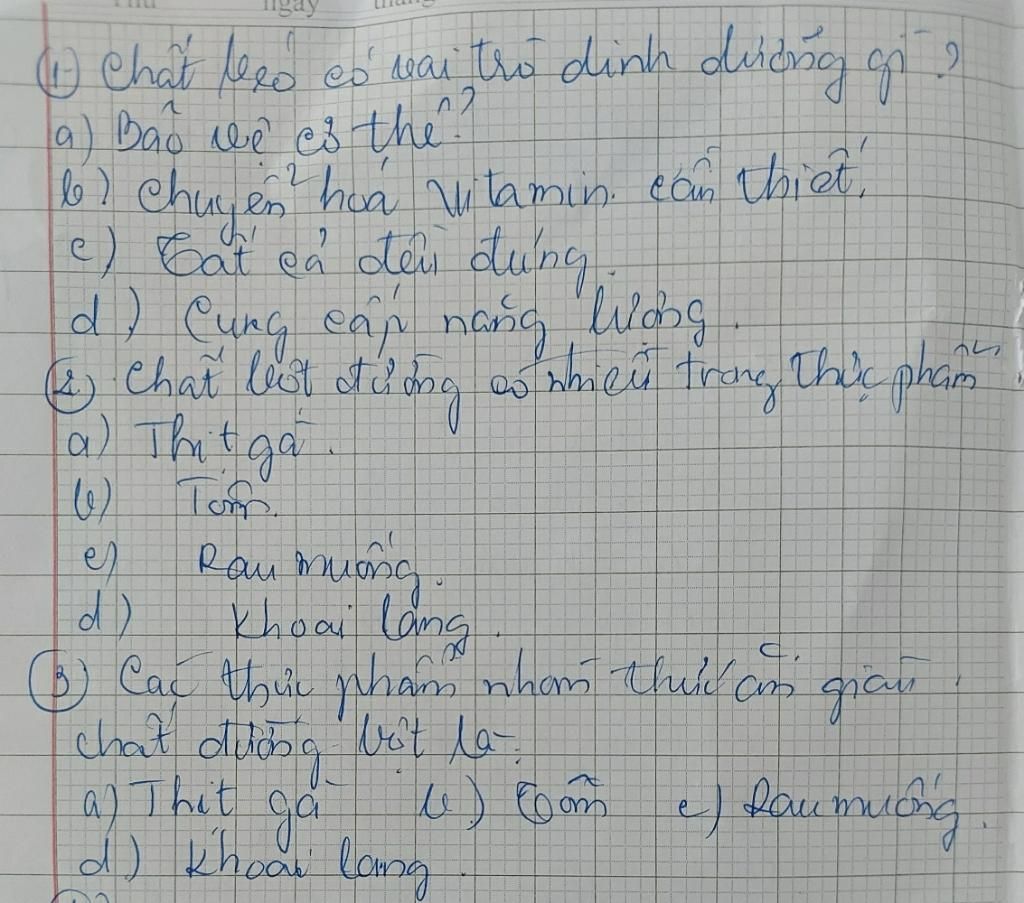 ① Chất béo có vai trò dinh dưỡng gì?
a) Bảo vệ cơ thể?
b) Chuyển hoá vitamin cần thiết.
c) Tất cả đều đúng.
d) Cung cấp năng lượng.
② Chất bột đường có nhiều trong thực phẩm
a) Thịt gà.
b) Tôm.
c) Rau muống.
d) Khoai lang.
③ Các thực phẩm nhóm thức ăn giàu
chất đường bột là:
a) Thịt gà b) Tôm c) Rau muống.
d) Khoai lang.